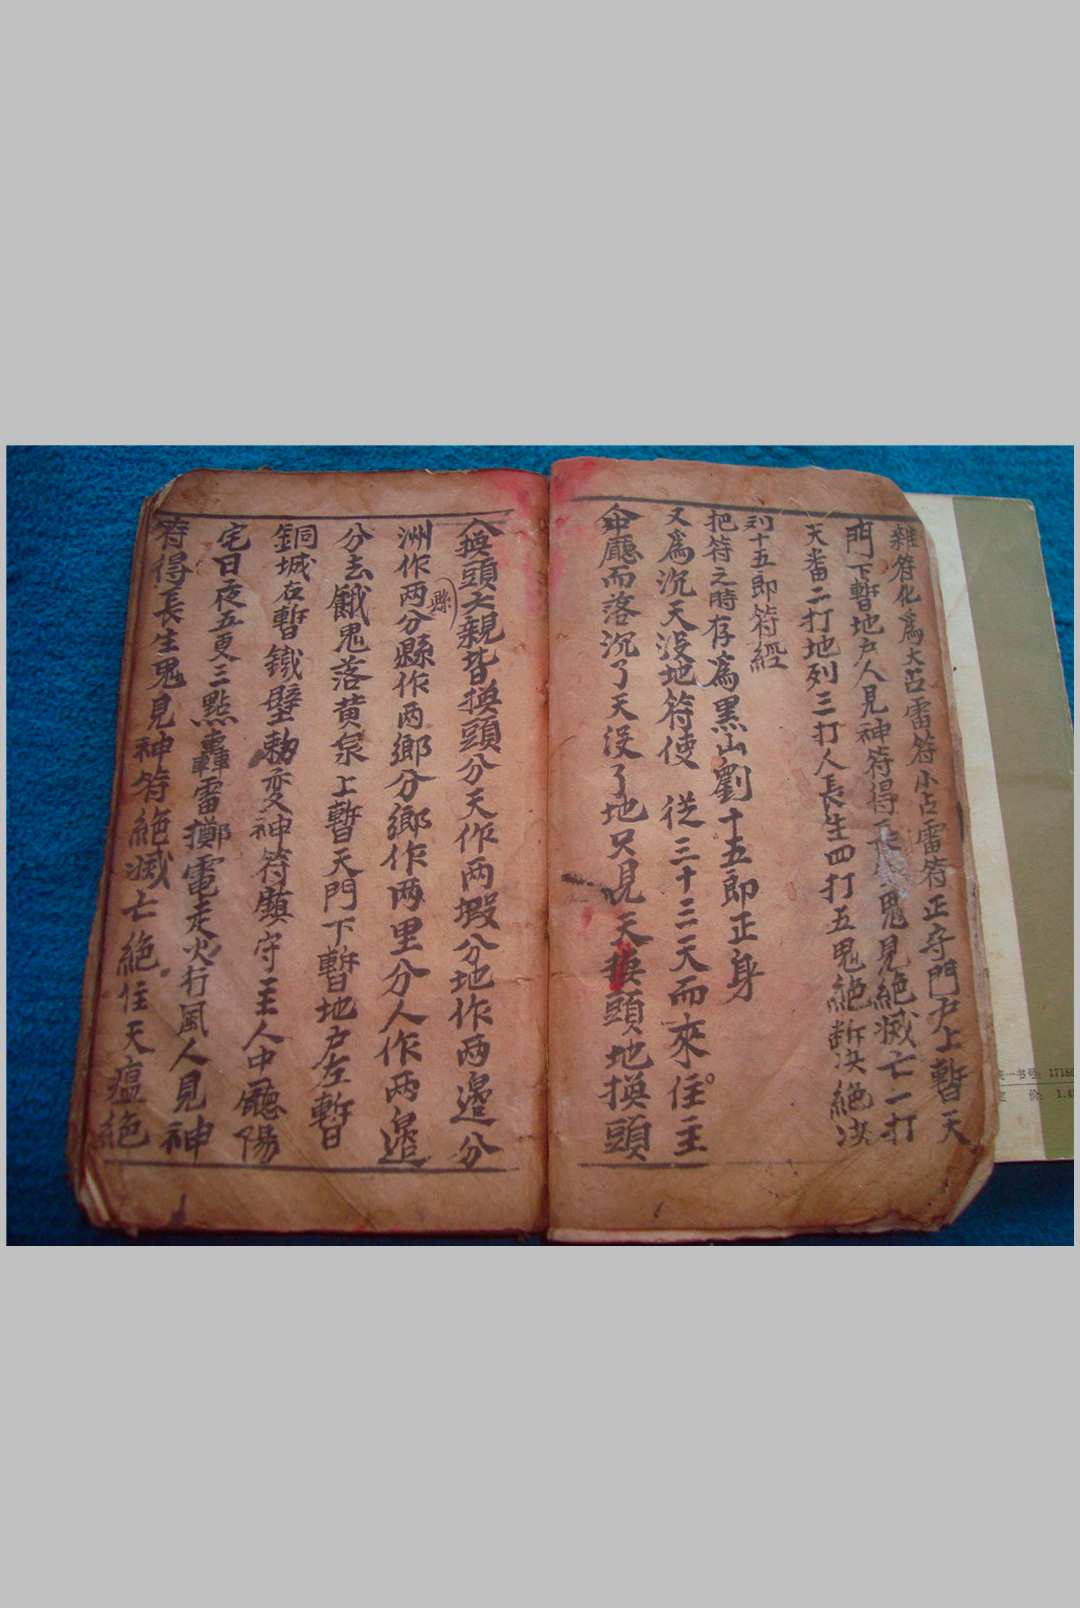 雜符化為大占雷符小占雷符正守門户上暫天
門下暫地户人見神符得長生鬼見絕滅亡一打
天番二打地列三打人長生四打五鬼絕断决絕决
刘十五即符經
把符之時存為黑山劉十五即正身
又為沉天没地符使 從三十三天而來住主
人中廳而落沉了天没了地只見天換頭地換頭
人換頭六親皆換頭分天作两塅分地作两邉分
洲作两分縣作两鄉分鄉作两里分人作两邉
縣
分去餓鬼落黄泉上暫天門下暫地户左暫
銅城右暫鐵壁勅变神符鎮守主人中廳陽
宅日夜五更三點轟雷擲電走火行風人見神
符得長生鬼見神符絕滅亡絕住天瘟絕
统一书号：17186
定 价： 1.4